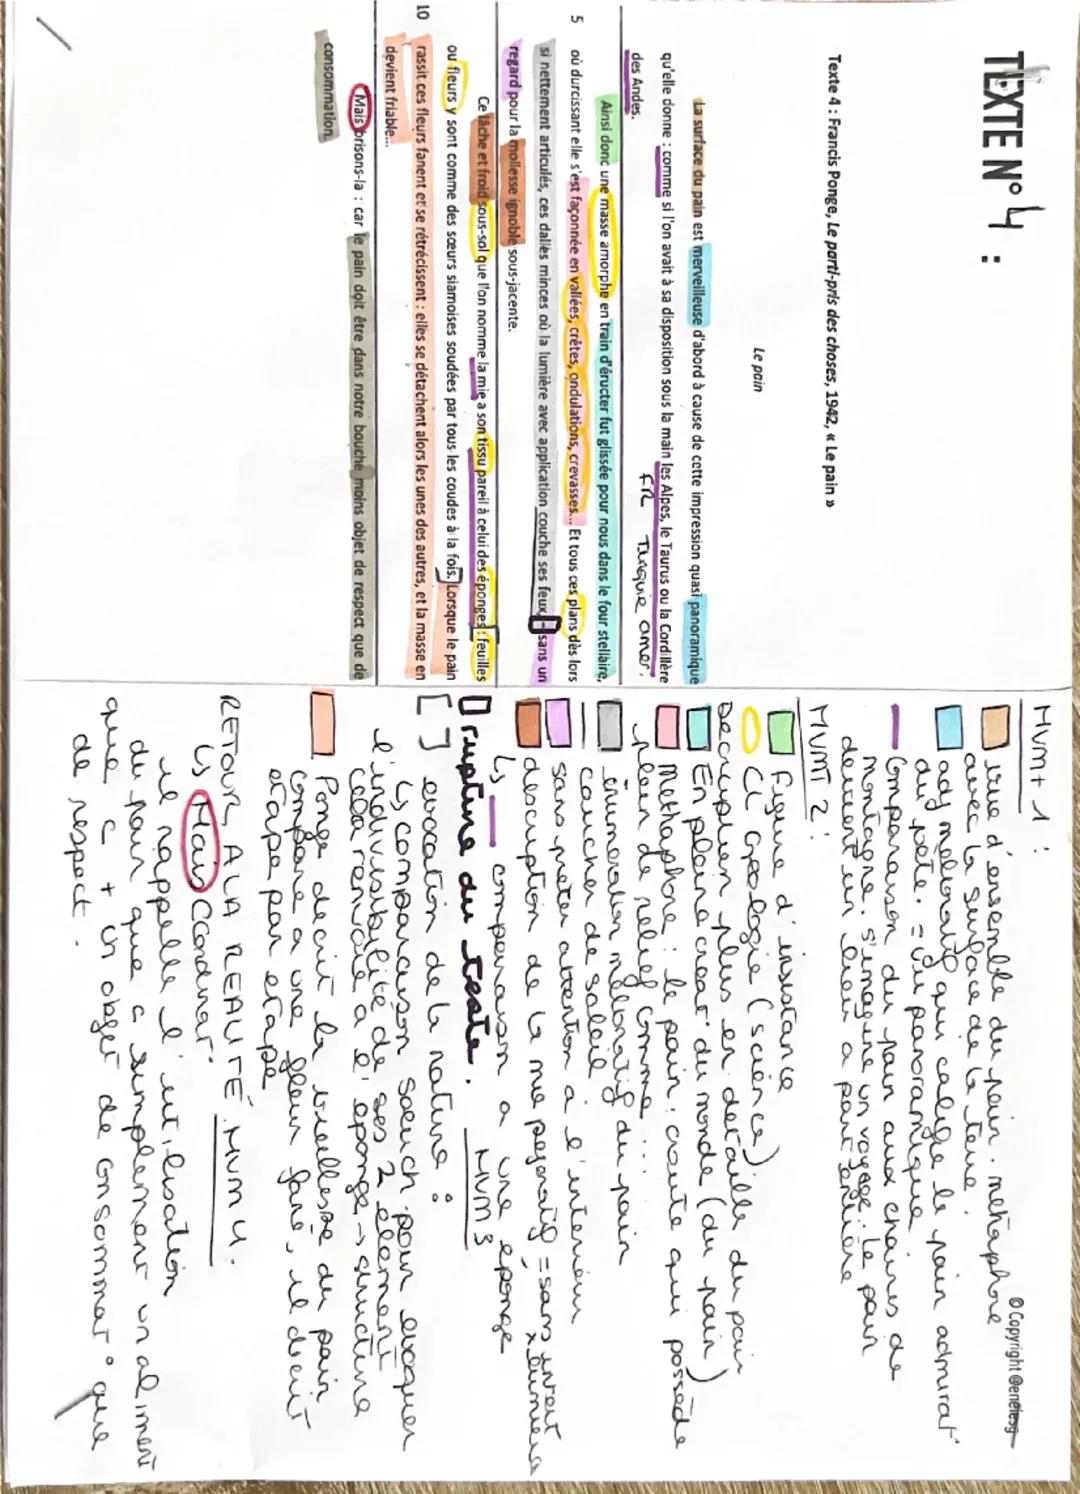 TEXTE N° 4 :
Texte 4 : Francis Ponge, Le parti-pris des choses, 1942, « Le pain »
Le pain
La surface du pain est merveilleuse d'abord à cause de cette impression quasi panoramique
qu'elle donne : comme si l'on avait à sa disposition sous la main les Alpes, le Taurus ou la Cordillère
FR Turquie amer.
des Andes.
Ainsi donc une masse amorphe en train d'éructer fut glissée pour nous dans le four stellaire,
5 où durcissant elle s'est façonnée en vallées, crêtes, ondulations, crevasses... Et tous ces plans dès lors
si nettement articulés, ces dalles minces où la lumière avec application couche ses feux, - sans un
regard pour la mollesse ignoble sous-jacente.
Ce lâche et froid sous-sol que l'on nomme la mie a son tissu pareil à celui des éponges : feuilles
ou fleurs y sont comme des sœurs siamoises soudées par tous les coudes à la fois. Lorsque le pain
10 rassit ces fleurs fanent et se rétrécissent : elles se détachent alors les unes des autres, et la masse en
devient friable...
Mais brisons-la : car le pain doit être dans notre bouche moins objet de respect que de
consommation.
© Copyright @enelesg
Mvmt 1 :
vue d'ensemble du pain. métaphore
avec la surface de la terre.
adj mélioratif qui calife le pain admirat°
du poète. = vu panoramique
Comparaison du pain aux chaines de
montagne. s'imagine un voyage : le pain
devient un lieu a part entière
MVMT 2 :
figure d'insistance
CL Géologie (science)
Description plus en detaille du pain
En pleine creat° du monde (du pain)
Méthaphore : le pain : croute qui possède
plein de relief comme ...
énumération mélioratif du pain
coucher de soleil
sans preter attention à l'interieur
description de la mie pejoratif = sans interet
x lumière
↳ comparaison a une eponge
rupture du texte. MVM 3
[ ] evocation de la nature :
↳ comparaison soeurs pour evoquer
l'indivisibilité de ses 2 element
cela renvoie a l'eponge → structure
Ponge decrit la vieillesse du pain
compare a une fleur fané, il decrit
etape par etape
RETOUR A LA REALITÉ MVM 4.
↳ Mais Coordinat°
il rappelle l'utilisation
du pain que a simplement un aliment
que c + un objet de consommat° que
de respect.